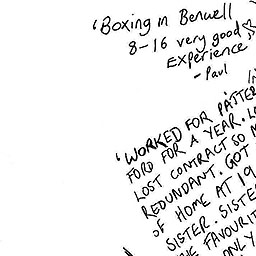 'Boxing in Benwell
8-16 very good
Experience'
- Paul
'WORKED FOR
FORD FOR A YEAR.
LOST CONTRACT SO
REDUNDANT. GOT
OF HOME AT 19
SISTER. SISTE
FAVOURIT
ONLY